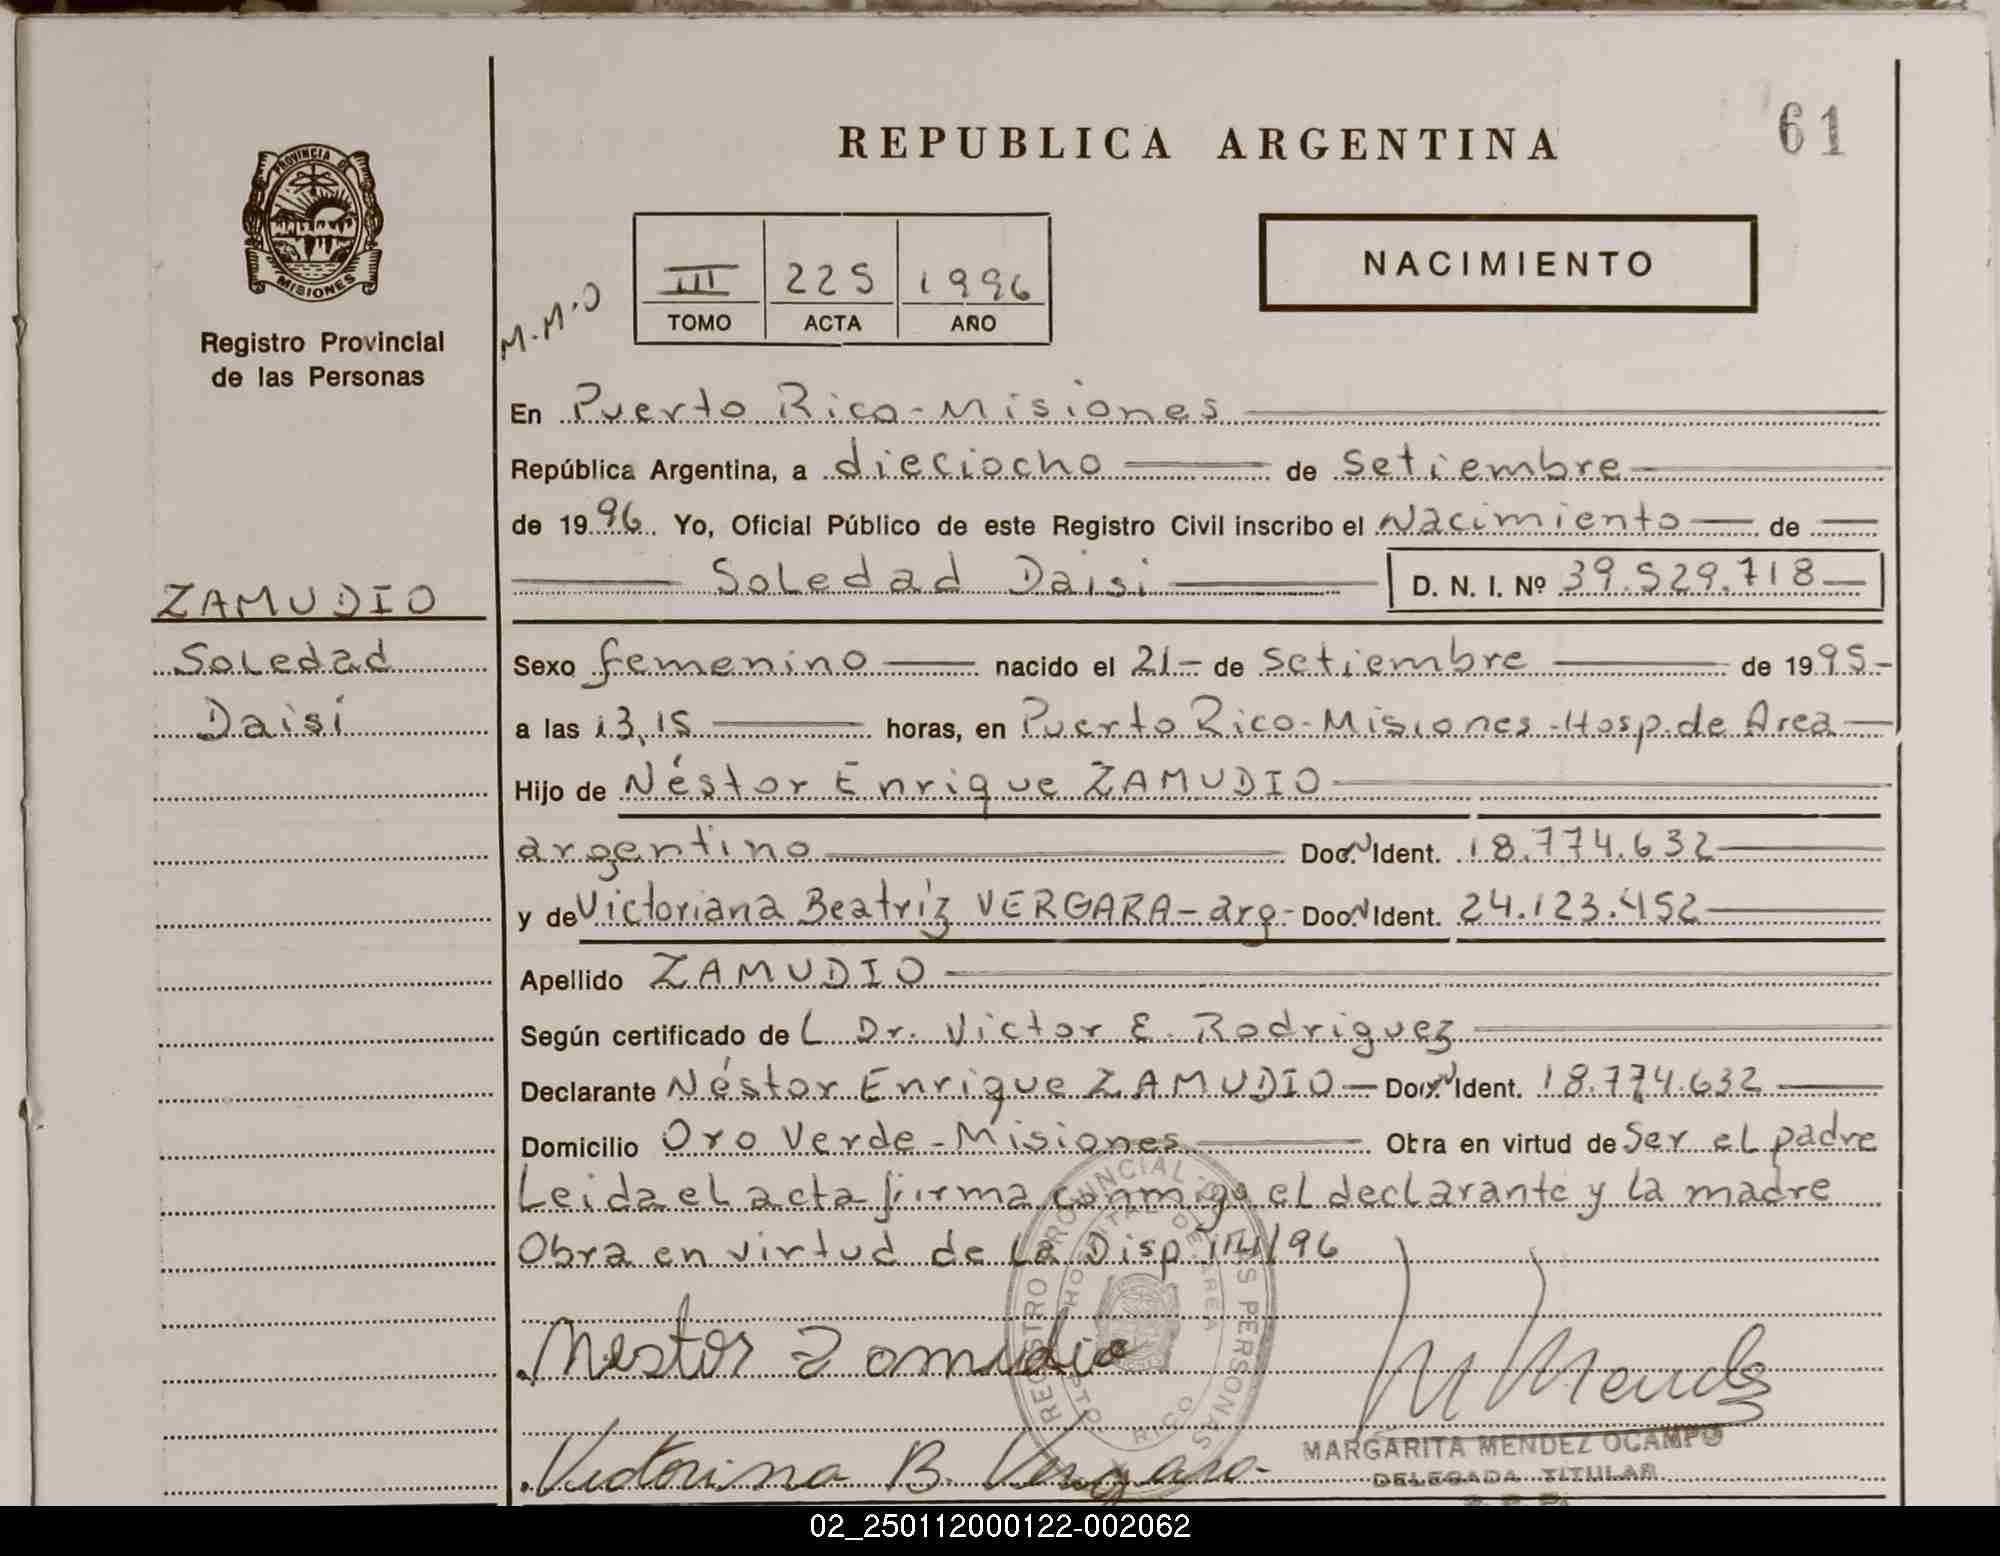 61
REPUBLICA ARGENTINA
PROVINCIA DE
MISIONES
Registro Provincial
de las Personas
M.M.O
III 225 1996
TOMO ACTA AÑO
NACIMIENTO
En Puerto Rico-Misiones
República Argentina, a dieciocho de Setiembre
de 1996. Yo, Oficial Público de este Registro Civil inscribo el Nacimiento de
Soledad Daisi D. N. I. Nº 39.529.718
ZAMUDIO
Soledad
Daisi
Sexo femenino nacido el 21- de Setiembre de 1995-
a las 13,15 horas, en Puerto Rico-Misiones-Hosp.de Area
Hijo de Néstor Enrique ZAMUDIO
argentino Doc. Ident. 18.774.632
y de Victoriana Beatriz VERGARA-arg- Doc. Ident. 24.123.452
Apellido ZAMUDIO
Según certificado de L Dr. Victor E. Rodriguez
Declarante Néstor Enrique ZAMUDIO Doc. Ident. 18.774.632
Domicilio Oro Verde-Misiones Obra en virtud de Ser el padre
Leida el acta firma conmigo el declarante y la madre
Obra en virtud de la Disp. /96
REGISTRO PROVINCIAL DE LAS PERSONAS
HOSPITAL DE AREA
PTO RICO
Nestor Zamudio
M Mendez
Victorina B. Vergara
MARGARITA MENDEZ OCAMPO
DELEGADA TITULAR
02_250112000122-002062